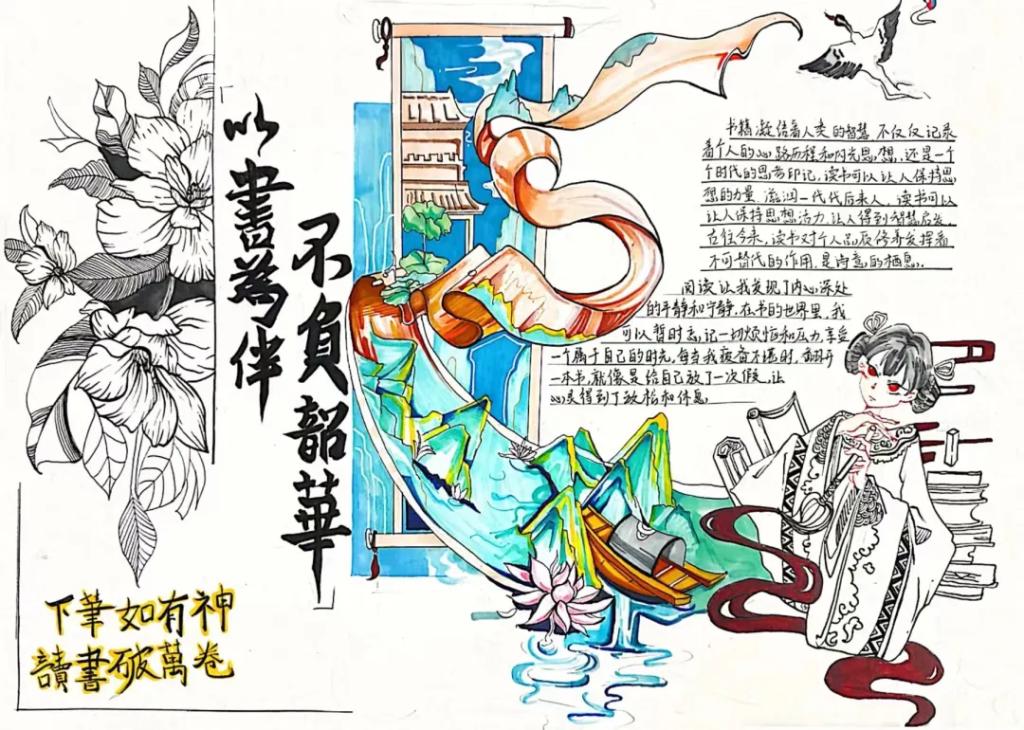 以書為伴
不負韶華
书籍 着人类的智慧,不仅仅记录
着个人的心路历程和闪光思想,还是一个
个时代的思考印记,读书可以让人保持思
想的力量 滋润一代代后来人,读书可以
让人保持思想活力 让人得到智慧启发,
古往今来,读书对个人品质修养发挥着
不可替代的作用,是诗意的栖息.
阅读让我发现了内心深处
的平静和宁静.在书的世界里,我
可以暂时忘记一切烦恼和压力,享受
一个属于自己的时光,每当我疲惫不堪时,翻开
一本书,就像是给自己放了一次假,让
心灵得到了放松和休息
下筆如有神
讀書破萬卷